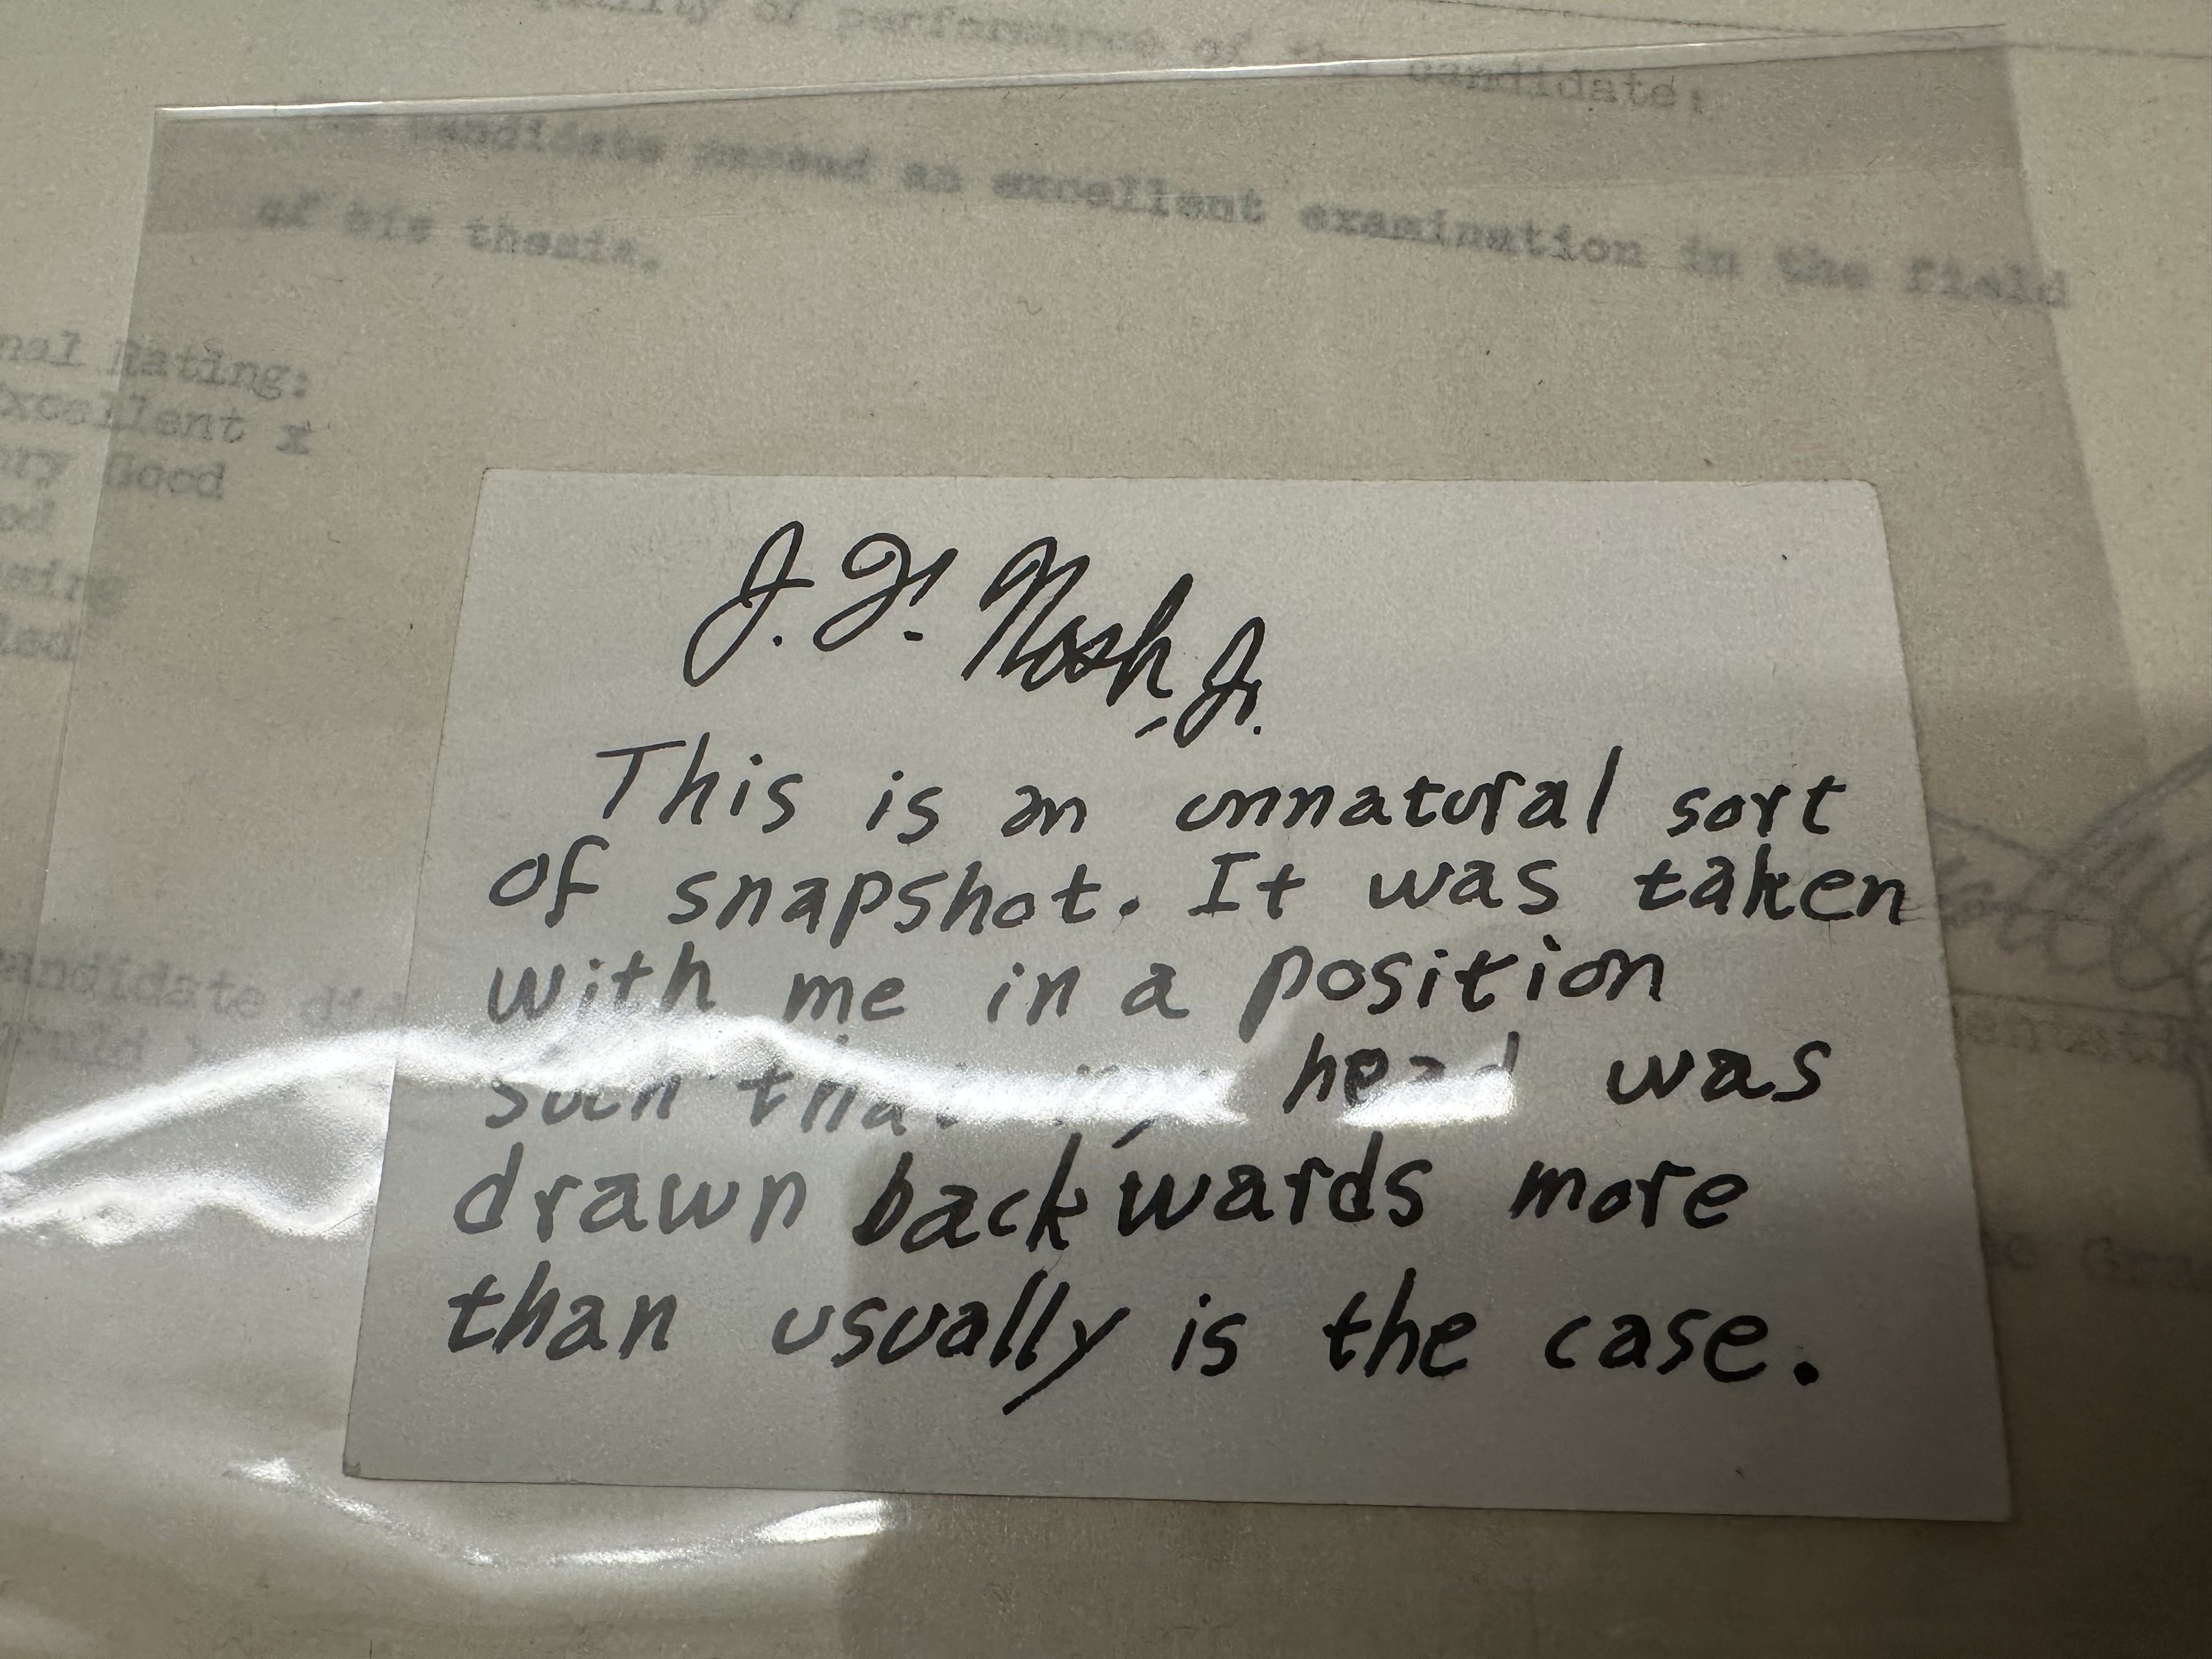 quality of performance of the candidate:
candidate passed an excellent examination in the field
of his thesis.
nal Rating:
Excellent x
ery Good
od
sing
led
J. F. Nash, Jr.
This is an unnatural sort
of snapshot. It was taken
with me in a position
such that my head was
drawn backwards more
than usually is the case.
andidate